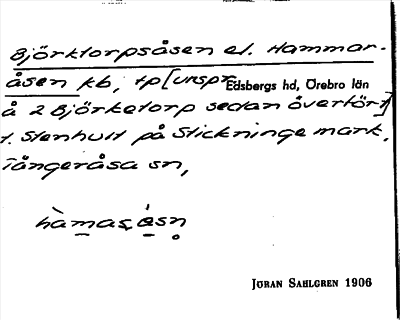 Björktorpsåsen el. Hammar-
åsen kb, tp [urspr. Edsbergs hd, Örebro län
å 2 Björketorp sedan överfört]
t. Stenhult på Stickninge mark,
Tångeråsa sn,
hàmasₒ ésn
JÖRAN SAHLGREN 1906